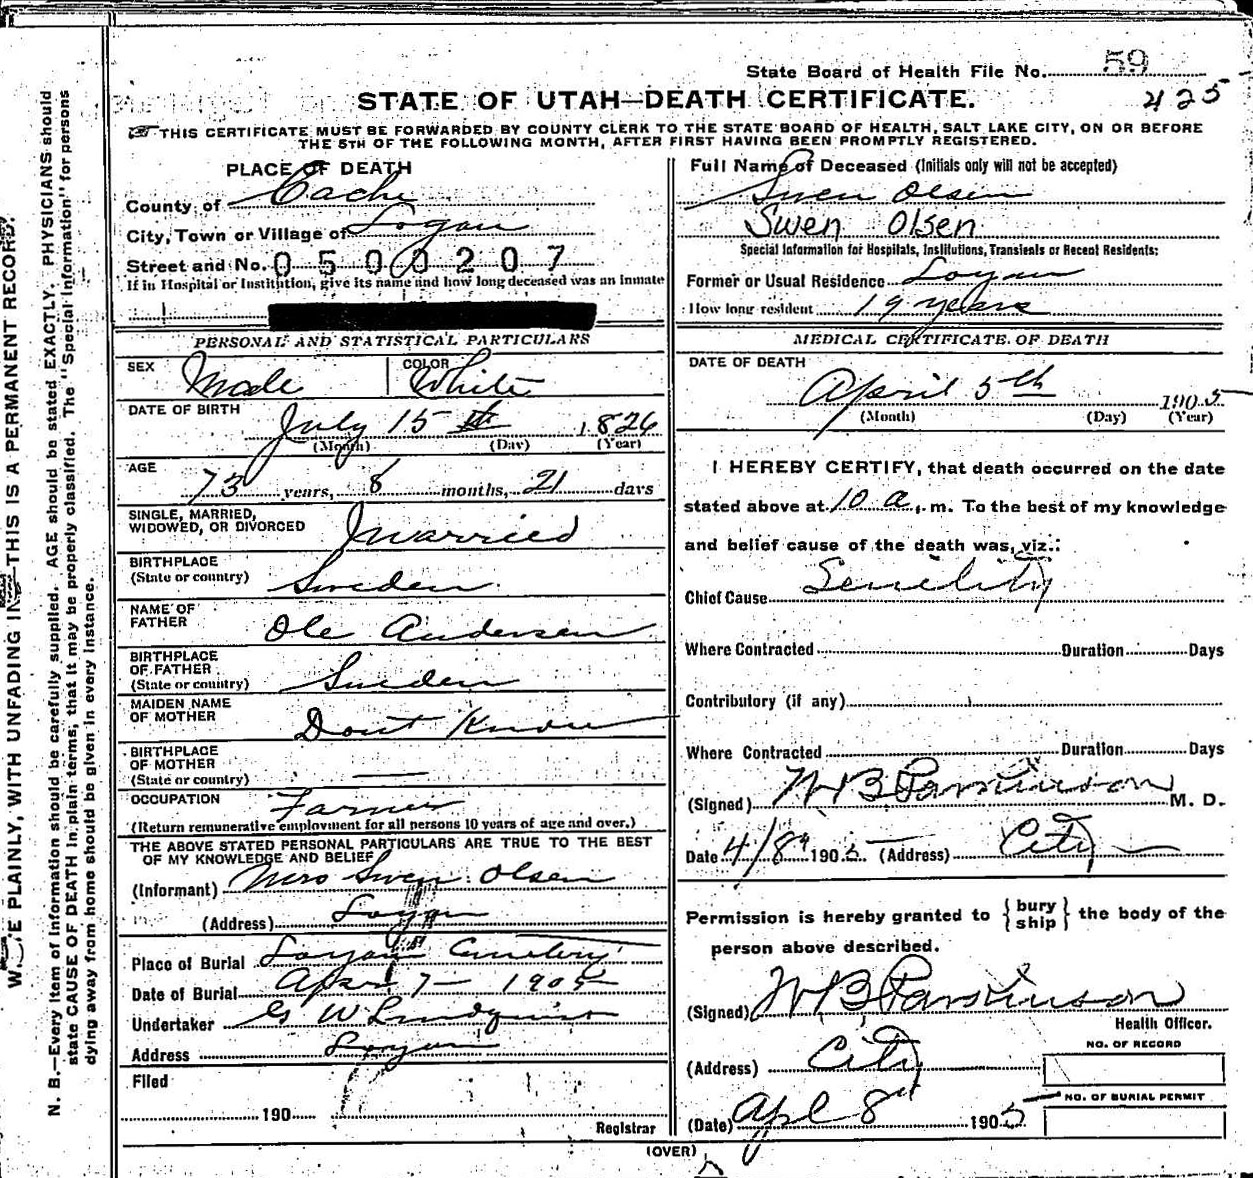 State Board of Health File No. 59
425
STATE OF UTAH—DEATH CERTIFICATE.
THIS CERTIFICATE MUST BE FORWARDED BY COUNTY CLERK TO THE STATE BOARD OF HEALTH, SALT LAKE CITY, ON OR BEFORE
THE 5TH OF THE FOLLOWING MONTH, AFTER FIRST HAVING BEEN PROMPTLY REGISTERED.
PLACE OF DEATH
County of Cache
City, Town or Village of Logan
Street and No. 0500207
If in Hospital or Institution, give its name and how long deceased was an Inmate
PERSONAL AND STATISTICAL PARTICULARS
SEX Male COLOR White
DATE OF BIRTH July 15th 1826
(Month) (Day) (Year)
AGE 73 years, 8 months, 21 days
SINGLE, MARRIED,
WIDOWED, OR DIVORCED Married
BIRTHPLACE
(State or country) Sweden
NAME OF
FATHER Ole Andersen
BIRTHPLACE
OF FATHER
(State or country) Sweden
MAIDEN NAME
OF MOTHER Dont Know
BIRTHPLACE
OF MOTHER
(State or country) —
OCCUPATION Farmer
(Return remunerative employment for all persons 10 years of age and over.)
THE ABOVE STATED PERSONAL PARTICULARS ARE TRUE TO THE BEST
OF MY KNOWLEDGE AND BELIEF
(Informant) Mrs Swen Olsen
(Address) Logan
Place of Burial Logan Cemetery
Date of Burial Apr 7— 1905
Undertaker G W Lundquist
Address Logan
Filed
190
Registrar
Full Name of Deceased (Initials only will not be accepted)
Swen Olsen
Swen Olsen
Special Information for Hospitals, Institutions, Transients or Recent Residents:
Former or Usual Residence Logan
How long resident 19 years
MEDICAL CERTIFICATE OF DEATH
DATE OF DEATH
April 5th 1905
(Month) (Day) (Year)
I HEREBY CERTIFY, that death occurred on the date
stated above at 10 a. m. To the best of my knowledge
and belief cause of the death was, viz.:
Chief Cause Senility
Where Contracted Duration Days
Contributory (if any)
Where Contracted Duration Days
(Signed) W B Parkinson M. D.
Date 4/8th 1905 (Address) City
Permission is hereby granted to {bury
ship} the body of the
person above described.
(Signed) W B Parkinson
Health Officer.
(Address) City
NO. OF RECORD
NO. OF BURIAL PERMIT
(Date) Apl 8th 1905
(OVER)
WRITE PLAINLY, WITH UNFADING INK—THIS IS A PERMANENT RECORD.
N. B.—Every item of information should be carefully supplied. AGE should be stated EXACTLY. PHYSICIANS should
state CAUSE OF DEATH in plain terms, that it may be properly classified. The "Special Information" for persons
dying away from home should be given in every instance.